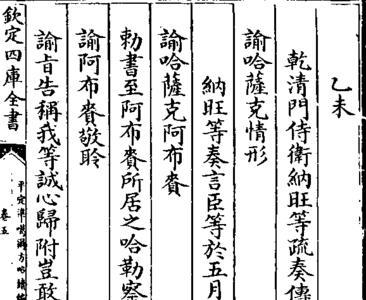 乙未
乾清門侍衛納旺等疏奏傳
諭哈薩克情形
納旺等奏言臣等於五月
諭哈薩克阿布賚
勅書至阿布賚所居之哈勒察
諭阿布賚敬聆
諭旨告稱我等誠心歸附豈敢
欽定四庫全書
平定準噶爾方略續編
卷五